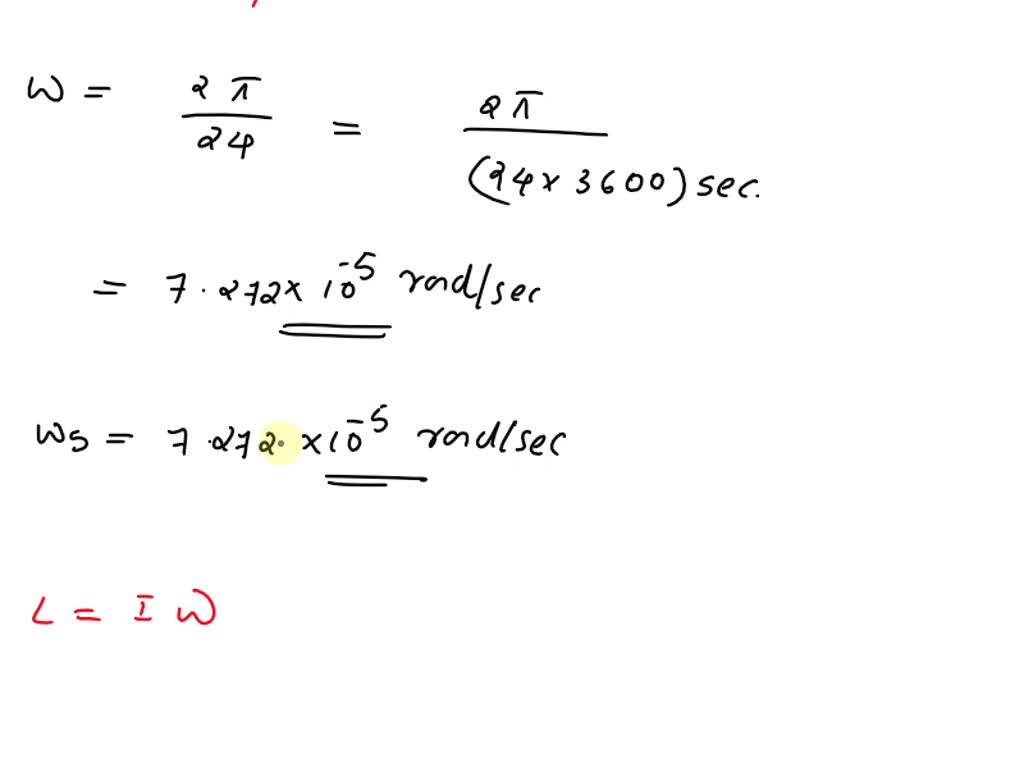 W = 2π/24 = 2π/(24 x 3600) sec.
= 7.272 x 10^-5 rad/sec
W5 = 7.272. x 10^-5 rad/sec
L = I W